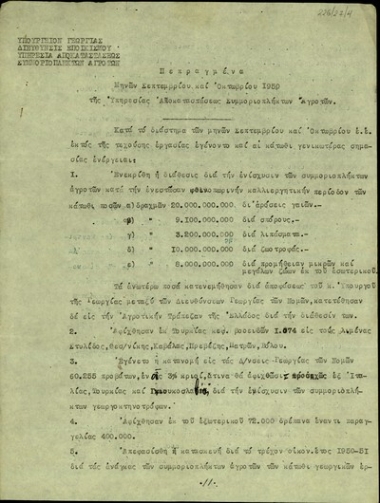 ΥΠΟΥΡΓΕΙΟΝ ΓΕΩΡΓΙΑΣ
ΔΙΕΥΘΥΝΣΙΣ ΕΠΟΙΚΙΣΜΟΥ
ΥΠΗΡΕΣΙΑ ΑΠΟΚΑΤΑΣΤΑΣΕΩΣ
ΣΥΜΜΟΡΙΟΠΛΗΚΤΩΝ ΑΓΡΟΤΩΝ
Πεπραγμένα
Μηνῶν Σεπτεμβρίου καί Ὀκτωβρίου 1950
τῆς Ὑπηρεσίας Ἀποκαταστάσεως Συμμοριοπλήκτων Ἀγροτῶν.
Κατά τό διάστημα τῶν μηνῶν Σεπτεμβρίου καί Ὀκτωβρίου ἐ.ἔ.
ἐκτός τῆς τρεχούσης ἐργασίας ἐγένοντο καί αἱ κάτωθι γενικωτέρας σημα-
σίας ἐνέργειαι:
1. Ἐνεκρίθη ἡ διάθεσις διά τήν ἐνίσχυσιν τῶν συμμοριοπλήκτων
ἀγροτῶν κατά τήν ἐνεστῶσαν φθινοπωρινήν καλλιεργητικήν περίοδον τῶν
κάτωθι ποσῶν, α) δραχμῶν 20.000.000.000 δι' ἀρόσεις γαιῶν.-
β) " 5.100.000.000 διά σπόρους.-
γ) " 3.200.000.000 διά λιπάσματα.-
δ) " 10.000.000.000 διά ζωοτροφάς.-
ε) " 5.000.000.000 διά προμήθειαν μικρῶν καί
μεγάλων ζώων ἐκ τοῦ ἐσωτερικοῦ.
Τά ἀνωτέρω ποσά κατενεμήθησαν διά ἀποφάσεως τοῦ κ. Ὑπουργοῦ
τῆς Γεωργίας μεταξύ τῶν Διευθύνσεων Γεωργίας τῶν Νομῶν, κατετέθησαν
δέ εἰς τήν Ἀγροτικήν Τράπεζαν τῆς Ἑλλάδος διά τήν διάθεσίν των.
2. Ἀφίχθησαν ἐκ Τουρκίας κεφ. βοοειδῶν 1.674 εἰς τούς λιμένας
Στυλίδος, Θεσ/νίκης, Καβάλας, Πρεβέζης, Πατρῶν, Βόλου.
3. Ἐγένετο ἡ κατανομή εἰς τάς Δ/νσεις Γεωργίας τῶν Νομῶν
60.255 προβάτων, ἐν οἷς 3% κριοί, ἅτινα θά ἀφιχθῶσι προσεχῶς ἐξ Ἰτα-
λίας, Τουρκίας καί Γιουκοσλαβίας, διά τήν ἐνίσχυσιν τῶν συμμοριοπλή-
κτων γεωργοκτηνοτρόφων.
4. Ἀφίχθησαν ἐκ τοῦ ἐξωτερικοῦ 72.000 δρέπανα ἔναντι παραγ-
γελίας 400.000.
5. Ἀπεφασίσθη ἡ κατασκευή διά τό τρέχον οἰκον. ἔτος 1950-51
διά τάς ἀνάγκας τῶν συμμοριοπλήκτων ἀγροτῶν τῶν κάτωθι γεωργικῶν ἐρ-
-//-